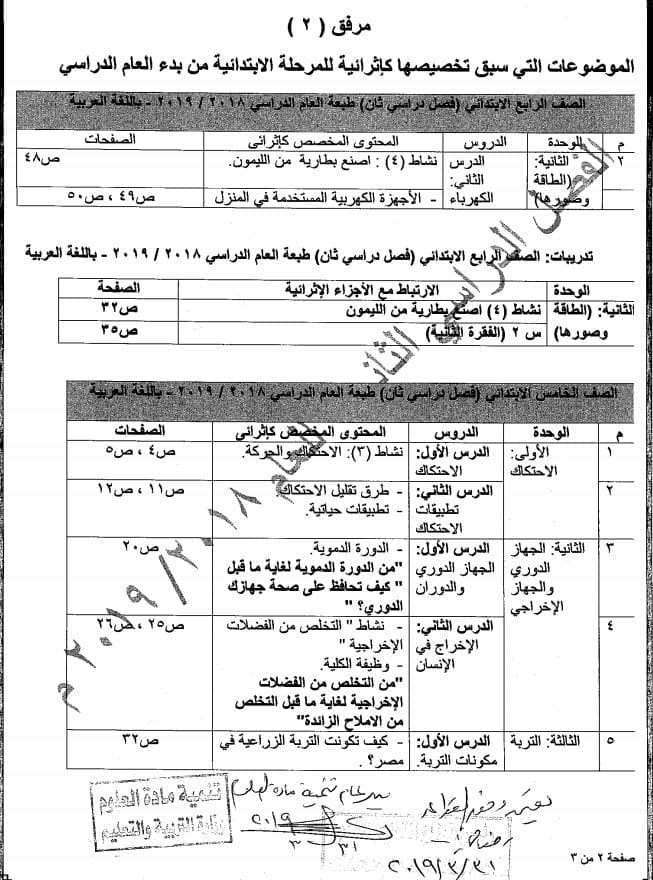 مرفق ( ٢ )
الموضوعات التي سبق تخصيصها كإثرائية للمرحلة الابتدائية من بدء العام الدراسي
الصف الرابع الابتدائي (فصل دراسي ثان) طبعة العام الدراسي ٢٠١٨ / ٢٠١٩ - باللغة العربية
م الوحدة الدروس المحتوى المخصص كإثرائى الصفحات
٢ الثانية: الدرس نشاط (٤) : اصنع بطارية من الليمون. ص٤٨
(الطاقة الثاني:
وصورها) الكهرباء - الأجهزة الكهربية المستخدمة في المنزل ص٤٩ ، ص٥٠
تدريبات: الصف الرابع الابتدائي (فصل دراسي ثان) طبعة العام الدراسي ٢٠١٨ / ٢٠١٩ - باللغة العربية
الوحدة الارتباط مع الأجزاء الإثرائية الصفحة
الثانية: (الطاقة نشاط (٤) اصنع بطارية من الليمون ص٣٢
وصورها) س ٢ (الفقرة الثانية) ص٣٥
الصف الخامس الابتدائي (فصل دراسي ثان) طبعة العام الدراسي ٢٠١٨ / ٢٠١٩ - باللغة العربية
م الوحدة الدروس المحتوى المخصص كإثرائي الصفحات
١ الأولى: الدرس الأول: نشاط (٣): الاحتكاك والحركة. ص٤ ، ص٥
الاحتكاك الاحتكاك
٢ الدرس الثاني: - طرق تقليل الاحتكاك. ص١١ ، ص١٢
تطبيقات - تطبيقات حياتية.
الاحتكاك
٣ الثانية: الجهاز الدرس الأول: - الدورة الدموية. ص٢٠
الدوري الجهاز الدوري "من الدورة الدموية لغاية ما قبل
والجهاز والدوران " كيف تحافظ على صحة جهازك
الإخراجي الدوري؟ "
٤ الدرس الثاني: - نشاط " التخلص من الفضلات ص٢٥ ، ص٢٦
الإخراج في الإخراجية "
الإنسان - وظيفة الكلية.
"من التخلص من الفضلات
الإخراجية لغاية ما قبل التخلص
من الاملاح الزائدة"
٥ الثالثة: التربة الدرس الأول: - كيف تكونت التربة الزراعية في ص٣٢
مكونات التربة. مصر؟ .
الفصل الدراسي الثاني للعام ٢٠١٨ / ٢٠١٩ م
تنمية مادة العلوم
وزارة التربية والتعليم
مدير عام تنمية مادة العلوم
٢٠١٩
٣١ ٣
٢٠١٩/٣/٣١
صفحة ٢ من ٣